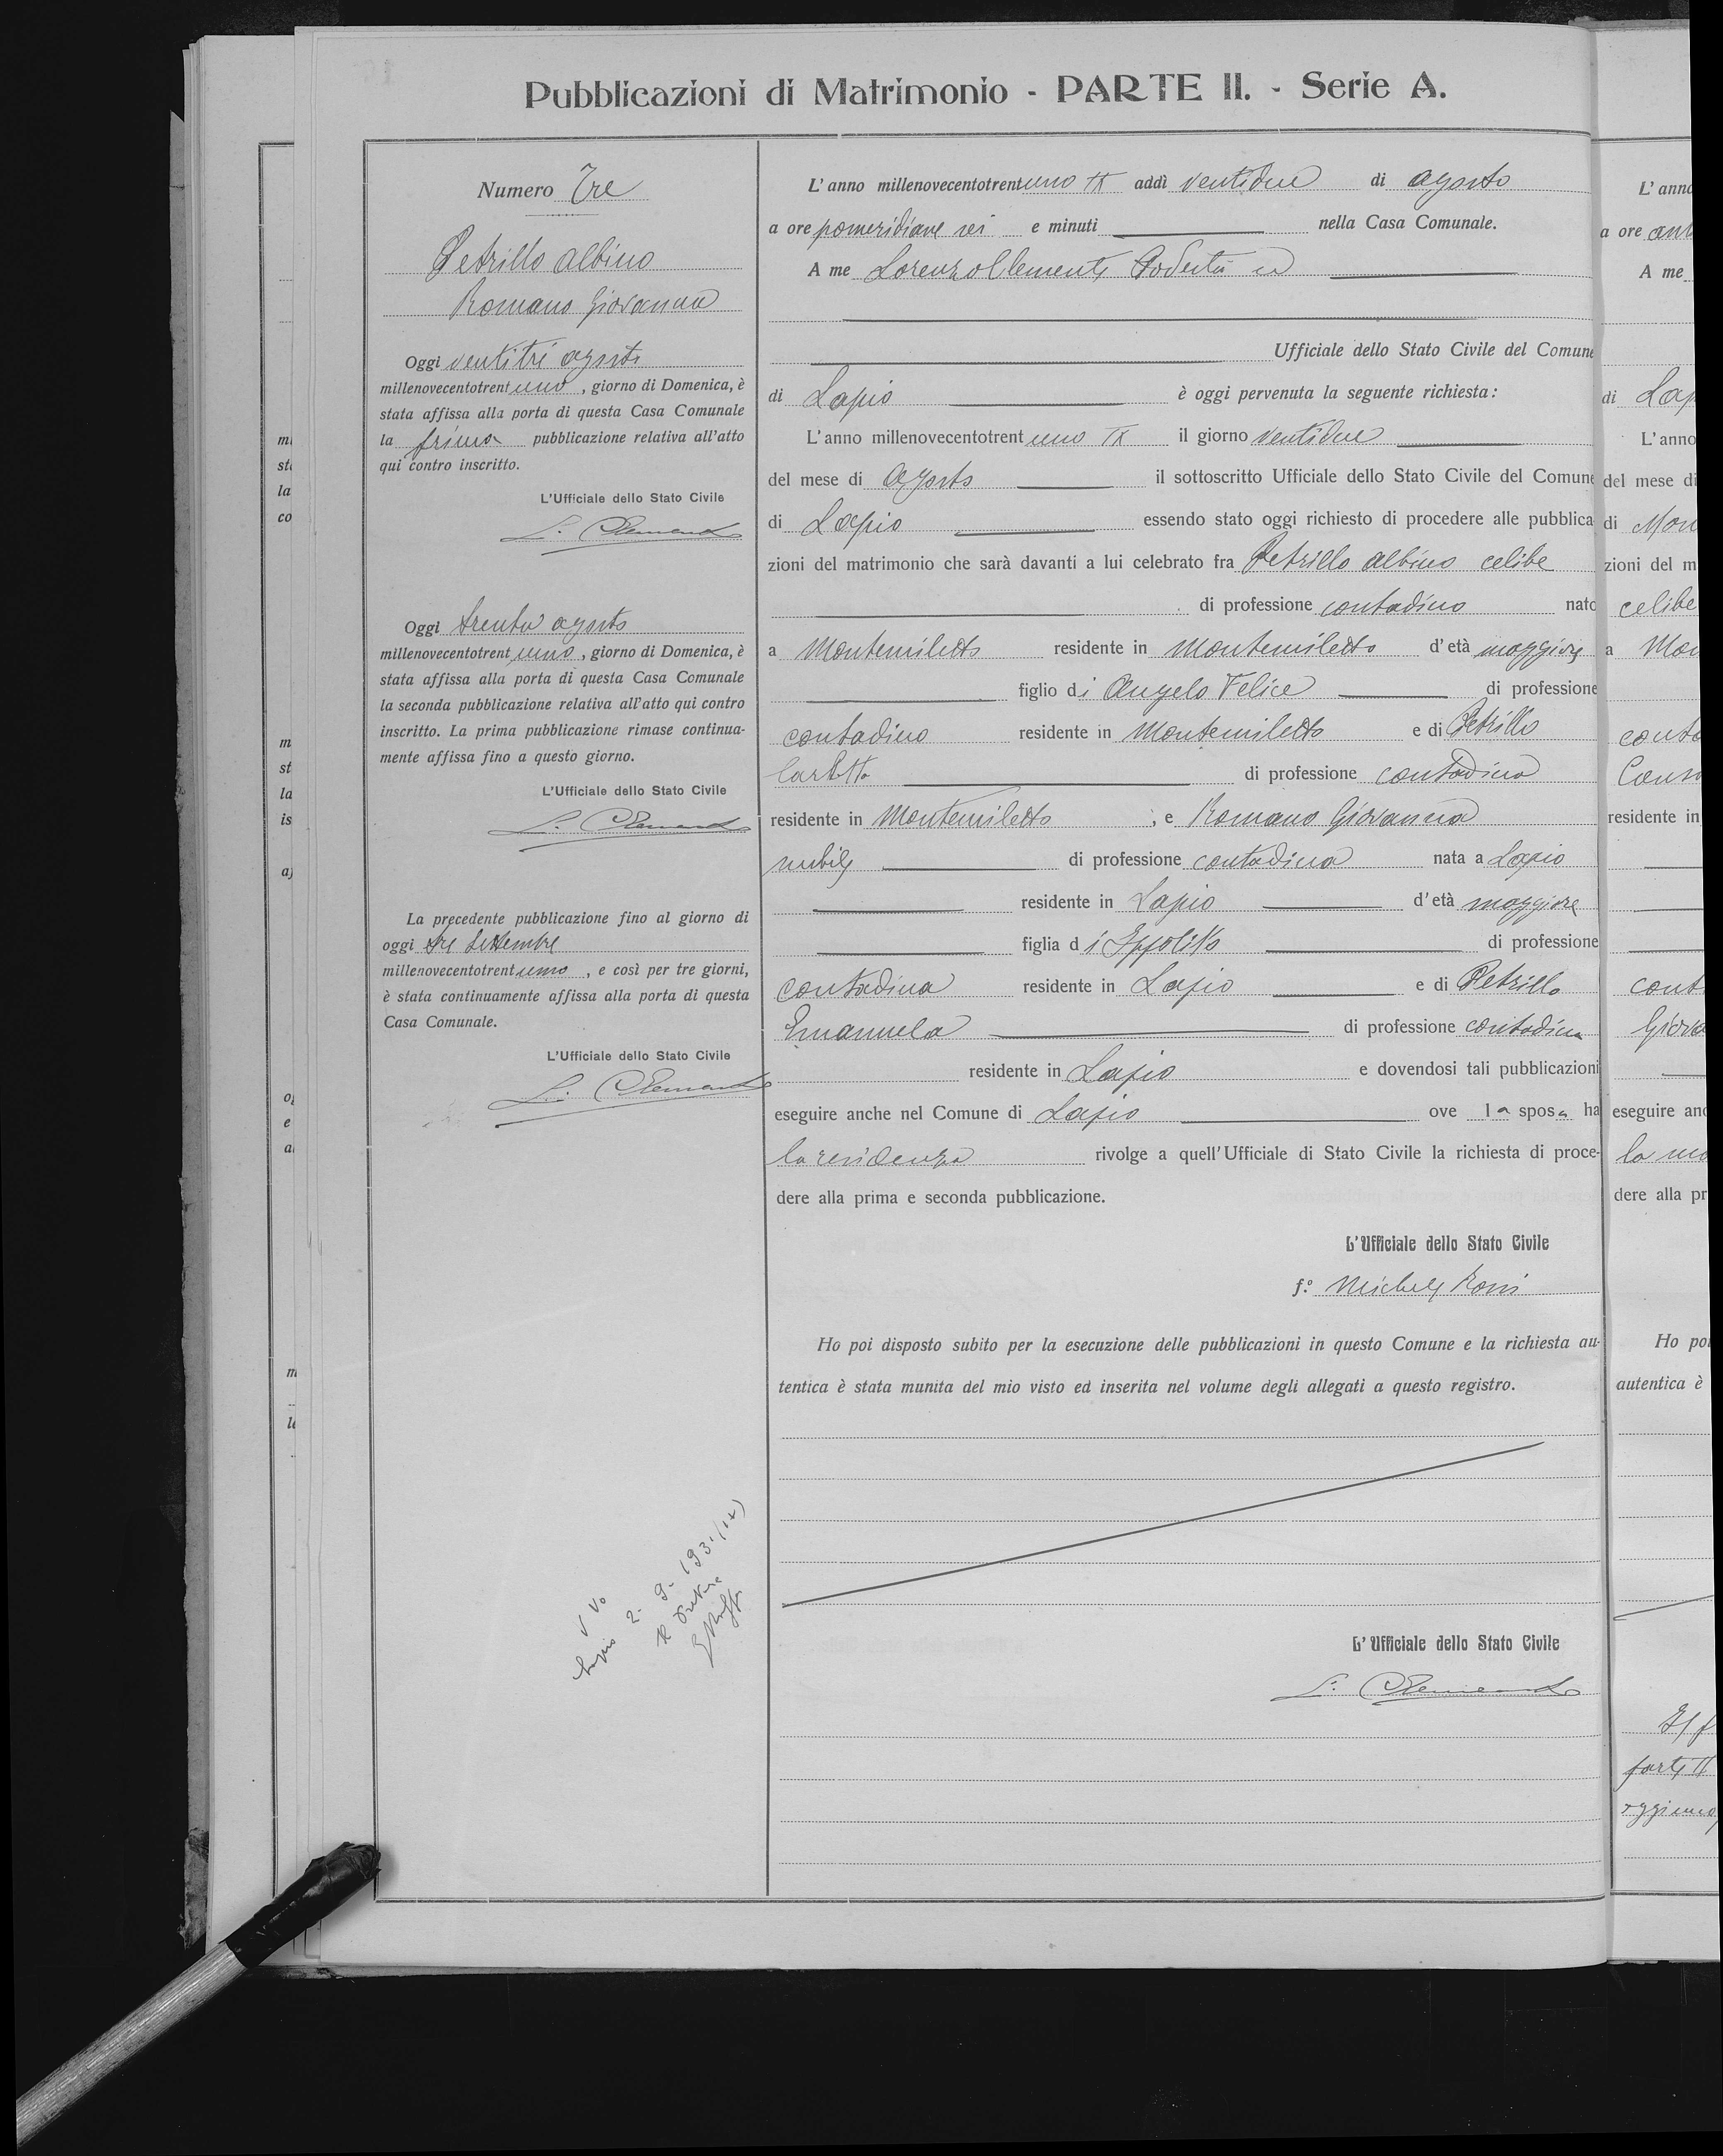 Pubblicazioni di Matrimonio - PARTE II. - Serie A.
Numero Tre
Petrillo Albino
Romano Giovanna
Oggi ventitré agosto
millenovecentotrentuno, giorno di Domenica, è
stata affissa alla porta di questa Casa Comunale
la prima pubblicazione relativa all'atto
qui contro inscritto.
L'Ufficiale dello Stato Civile
L. Clemente
Oggi trenta agosto
millenovecentotrentuno, giorno di Domenica, è
stata affissa alla porta di questa Casa Comunale
la seconda pubblicazione relativa all'atto qui contro
inscritto. La prima pubblicazione rimase continua-
mente affissa fino a questo giorno.
L'Ufficiale dello Stato Civile
L. Clemente
La precedente pubblicazione fino al giorno di
oggi tre settembre
millenovecentotrentuno, e così per tre giorni,
è stata continuamente affissa alla porta di questa
Casa Comunale.
L'Ufficiale dello Stato Civile
L. Clemente
Vo
Lapio 2-9-1931
Il Pretore
L'anno millenovecentotrentuno IX addì ventidue di agosto
a ore pomeridiane sei e minuti nella Casa Comunale.
A me Lorenzo Clemente Podestà
Ufficiale dello Stato Civile del Comune
di Lapio è oggi pervenuta la seguente richiesta:
L'anno millenovecentotrentuno IX il giorno ventidue
del mese di Agosto il sottoscritto Ufficiale dello Stato Civile del Comune
di Lapio essendo stato oggi richiesto di procedere alle pubblica
zioni del matrimonio che sarà davanti a lui celebrato fra Petrillo Albino celibe
di professione contadino nato
a Montemiletto residente in Montemiletto d'età maggiore
figlio di Angelo Felice di professione
contadino residente in Montemiletto e di Petrillo
di professione contadina
residente in Montemiletto, e Romano Giovanna
nubile di professione contadina nata a Lapio
residente in Lapio d'età maggiore
figlia di Ippolito di professione
contadina residente in Lapio e di Petrillo
Emanuela di professione contadina
residente in Lapio e dovendosi tali pubblicazioni
eseguire anche nel Comune di Lapio ove la sposa ha
la residenza rivolge a quell'Ufficiale di Stato Civile la richiesta di proce-
dere alla prima e seconda pubblicazione.
L'Ufficiale dello Stato Civile
f.º Michele Rossi
Ho poi disposto subito per la esecuzione delle pubblicazioni in questo Comune e la richiesta au-
tentica è stata munita del mio visto ed inserita nel volume degli allegati a questo registro.
L'Ufficiale dello Stato Civile
L. Clemente